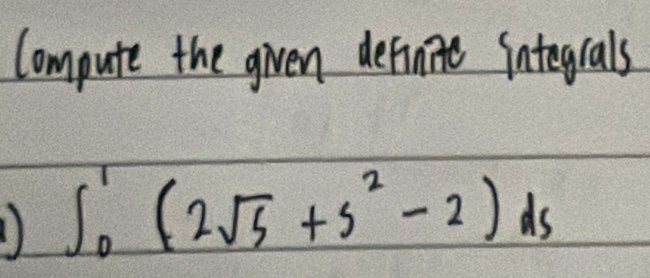 Compute the given definite integrals
a) ∫₀¹ (2√s + s² - 2) ds